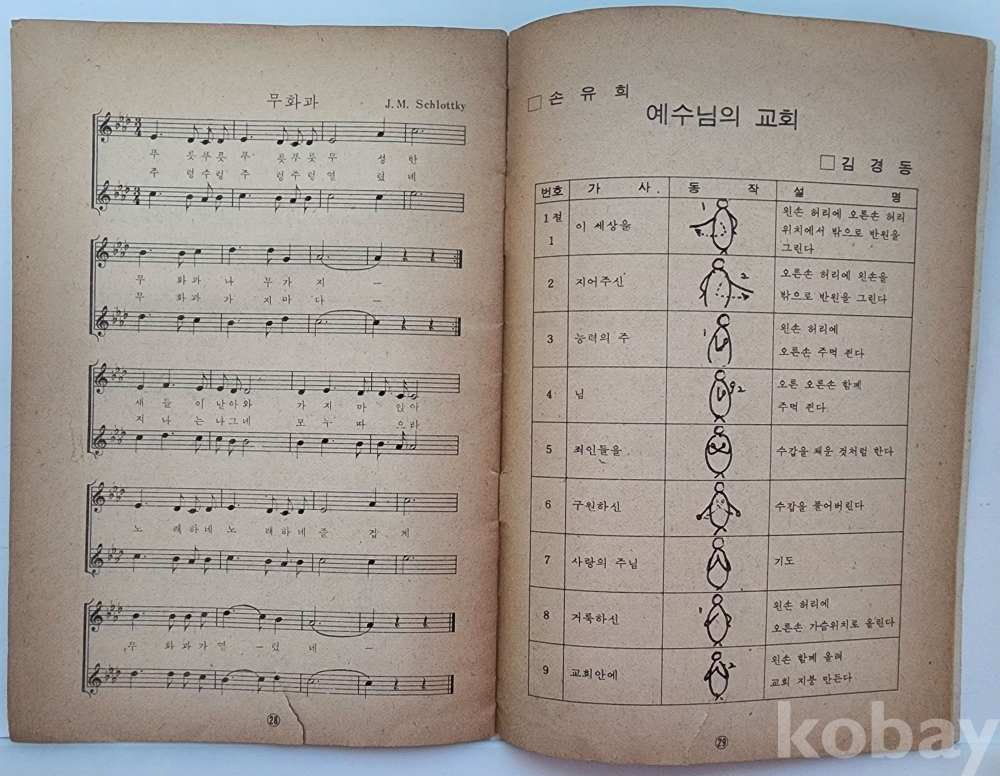 무화과
J. M. Schlottky
푸 릇푸릇 푸 릇푸릇 무 성 한
주 렁주렁 주 렁주렁 열 렸 네
무 화과 나 무가 지 —
무 화과 가 지마 다 —
새 들 이 날아와 가 지 마 앉아
지 나 는 나그네 모 누 따 으라
노 래하네 노 래하네 즐 겁 게
무 화과가열 — 렸 네 —
㉘
□ 손 유 희
예수님의 교회
□ 김 경 동
번호 가 사 동 작 설 명
1절
1 이 세상을 1 왼손 허리에 오른손 허리
위치에서 밖으로 반원을
그린다
2 지어주신 2 오른손 허리에 왼손을
밖으로 반원을 그린다
3 능력의 주 1 왼손 허리에
오른손 주먹 쥔다
4 님 2 오른 오른손 함께
주먹 쥔다
5 죄인들을 수갑을 채운 것처럼 한다
6 구원하신 수갑을 풀어버린다
7 사랑의 주님 기도
8 거룩하신 1 왼손 허리에
오른손 가슴위치로 올린다
9 교회안에 2 왼손 함께 올려
교회 지붕 만든다
㉙
kobay